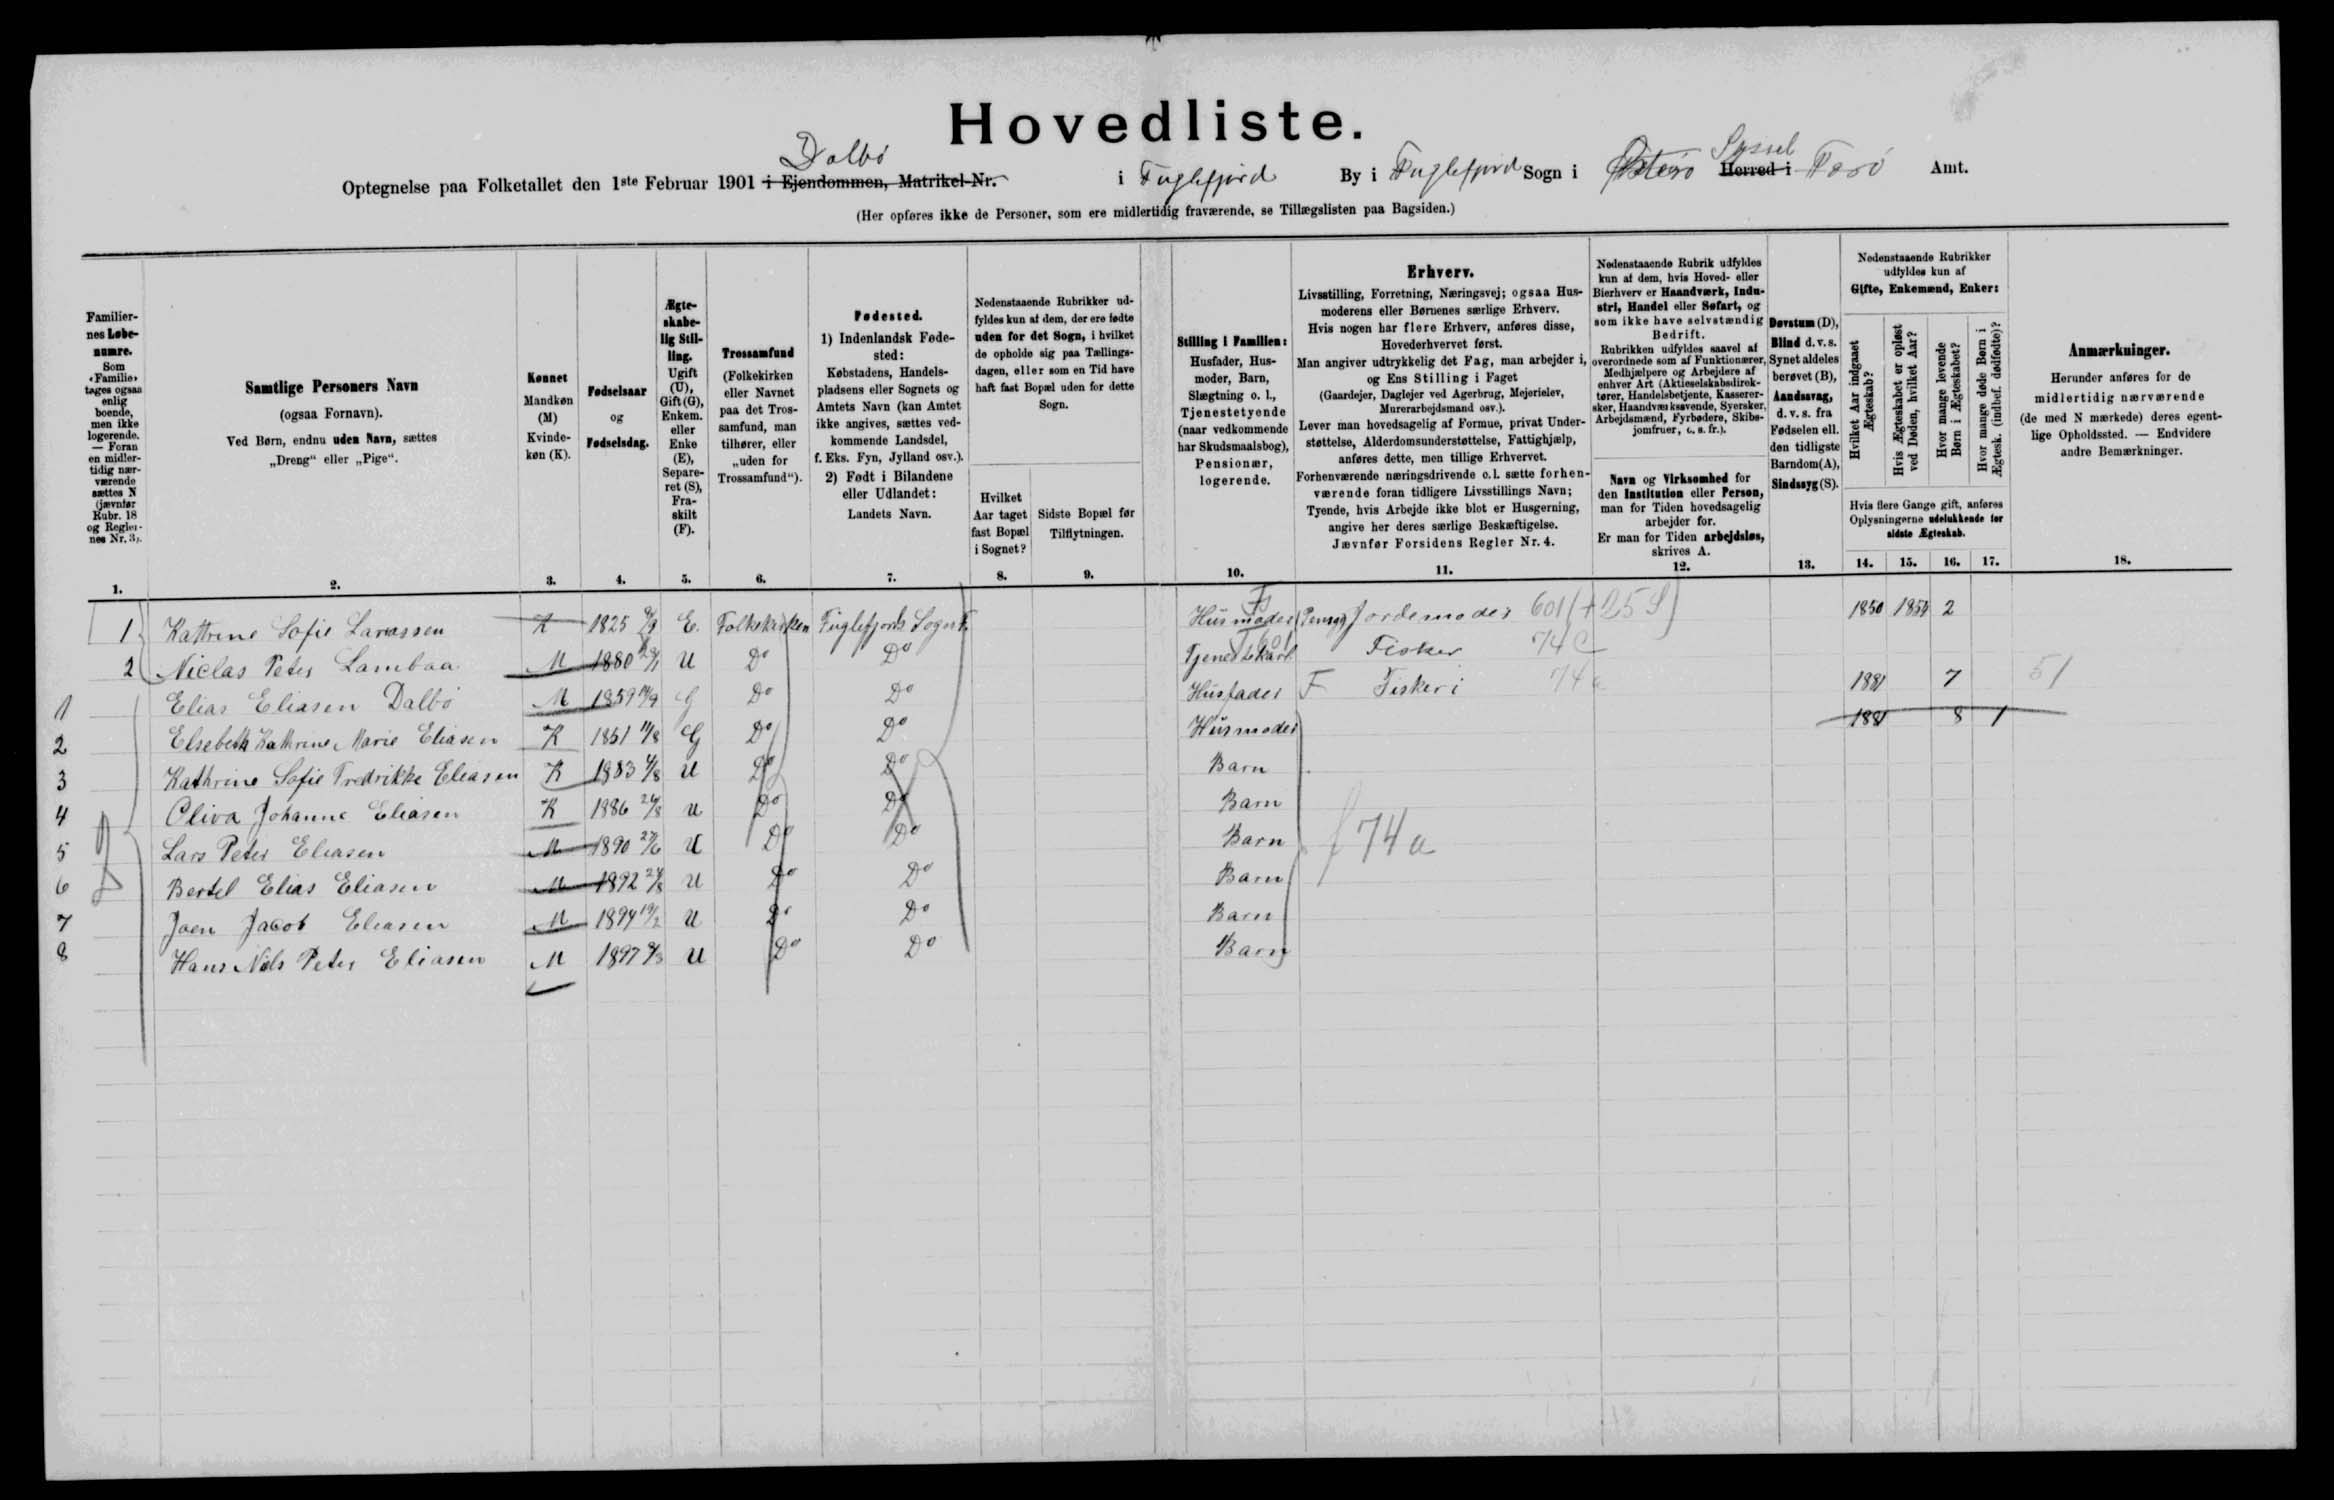 Hovedliste.
Dalbö
Optegnelse paa Folketallet den 1ste Februar 1901 i Ejendommen, Matrikel-Nr. i Fuglefjord By i Fuglefjord Sogn i Österö Syssel Herred i Farö Amt.
(Her opføres ikke de Personer, som ere midlertidig fraværende, se Tillægslisten paa Bagsiden.)
Familier-
nes Løbe-
numre.
Som
«Familie»
tages ogsaa
enlig
boende,
men ikke
logerende.
— Foran
en midler-
tidig nær-
værende
sættes N
(jævnfør
Rubr. 18
og Regler-
nes Nr. 3).
Samtlige Personers Navn
(ogsaa Fornavn).
Ved Børn, endnu uden Navn, sættes
„Dreng“ eller „Pige“.
Kønnet
Mandkøn
(M)
Kvinde-
køn (K).
Fødselsaar
og
Fødselsdag.
Ægte-
skabe-
lig Stil-
ling.
Ugift
(U),
Gift (G),
Enkem.
eller
Enke
(E),
Separe-
ret (S),
Fra-
skilt
(F).
Trossamfund
(Folkekirken
eller Navnet
paa det Tros-
samfund, man
tilhører, eller
„uden for
Trossamfund“).
Fødested.
1) Indenlandsk Føde-
sted:
Købstadens, Handels-
pladsens eller Sognets og
Amtets Navn (kan Amtet
ikke angives, sættes ved-
kommende Landsdel,
f. Eks. Fyn, Jylland osv.).
2) Født i Bilandene
eller Udlandet:
Landets Navn.
Nedenstaaende Rubrikker ud-
fyldes kun af dem, der ere fødte
uden for det Sogn, i hvilket
de opholde sig paa Tællings-
dagen, eller som en Tid have
haft fast Bopæl uden for dette
Sogn.
Hvilket
Aar taget
fast Bopæl
i Sognet?
Sidste Bopæl før
Tilflytningen.
Stilling i Familien:
Husfader, Hus-
moder, Barn,
Slægtning o. l.,
Tjenestetyende
(naar vedkommende
har Skudsmaalsbog),
Pensionær,
logerende.
Erhverv.
Livsstilling, Forretning, Næringsvej; ogsaa Hus-
moderens eller Børnenes særlige Erhverv.
Hvis nogen har flere Erhverv, anføres disse,
Hovederhvervet først.
Man angiver udtrykkelig det Fag, man arbejder i,
og Ens Stilling i Faget
(Gaardejer, Daglejer ved Agerbrug, Mejerielev,
Murerarbejdsmand osv.).
Lever man hovedsagelig af Formue, privat Under-
støttelse, Alderdomsunderstøttelse, Fattighjælp,
anføres dette, men tillige Erhvervet.
Forhenværende næringsdrivende o. l. sætte forhen-
værende foran tidligere Livsstillings Navn;
Tyende, hvis Arbejde ikke blot er Husgerning,
angive her deres særlige Beskæftigelse.
Jævnfør Forsidens Regler Nr. 4.
Nedenstaaende Rubrik udfyldes
kun af dem, hvis Hoved- eller
Bierhverv er Haandværk, Indu-
stri, Handel eller Søfart, og
som ikke have selvstændig
Bedrift.
Rubrikken udfyldes saavel af
overordnede som af Funktionærer,
Medhjælpere og Arbejdere af
enhver Art (Aktieselskabsdirek-
tører, Handelsbetjente, Kasserer-
sker, Haandværkssvende, Syersker,
Arbejdsmænd, Fyrbødere, Skibs-
jomfruer, o. s. fr.).
Navn og Virksomhed for
den Institution eller Person,
man for Tiden hovedsagelig
arbejder for.
Er man for Tiden arbejdsløs,
skrives A.
Døvstum (D),
Blind d. v. s.
Synet aldeles
berøvet (B),
Aandssvag,
d. v. s. fra
Fødselen ell.
den tidligste
Barndom (A),
Sindssyg (S).
Nedenstaaende Rubrikker
udfyldes kun af
Gifte, Enkemænd, Enker:
Hvilket Aar indgaaet
Ægteskab?
Hvis Ægteskabet er opløst
ved Døden, hvilket Aar?
Hvor mange levende
Børn i Ægteskabet?
Hvor mange døde Børn i
Ægtesk. (indbef. dødfødte)?
Hvis flere Gange gift, anføres
Oplysningerne udelukkende for
sidste Ægteskab.
Anmærkninger.
Herunder anføres for de
midlertidig nærværende
(de med N mærkede) deres egent-
lige Opholdssted. — Endvidere
andre Bemærkninger.
1. 2. 3. 4. 5. 6. 7. 8. 9. 10. 11. 12. 13. 14. 15. 16. 17. 18.
1 Kathrine Sofie Larassen K 1825 E. Folkekirken Fuglefjords Sogn Husmoder Jordemoder 601 (+25 S) 1850 1854 2
2 Niclas Peter Lambaa M 1880 U Do Do Tjenestekarl Fisker 74 c
1 Elias Eliasen Dalbö M 1859 G Do Do Husfader F Fiskeri 74 a 1881 7 51
2 Elsebeth Kathrine Marie Eliasen K 1861 11/8 G Do Do Husmoder 1881 8 1
3 Kathrine Sofie Fredrikke Eliasen K 1883 U Do Do Barn
4 Oliva Johanne Eliasen K 1886 24/8 U Do Do Barn
5 Lars Peter Eliasen M 1890 27/6 U Do Do Barn 74 a
6 Bertel Elias Eliasen M 1892 24/8 U Do Do Barn
7 Joen Jacob Eliasen M 1894 19/2 U Do Do Barn
8 Hans Niels Peter Eliasen M 1897 9/3 U Do Do Barn